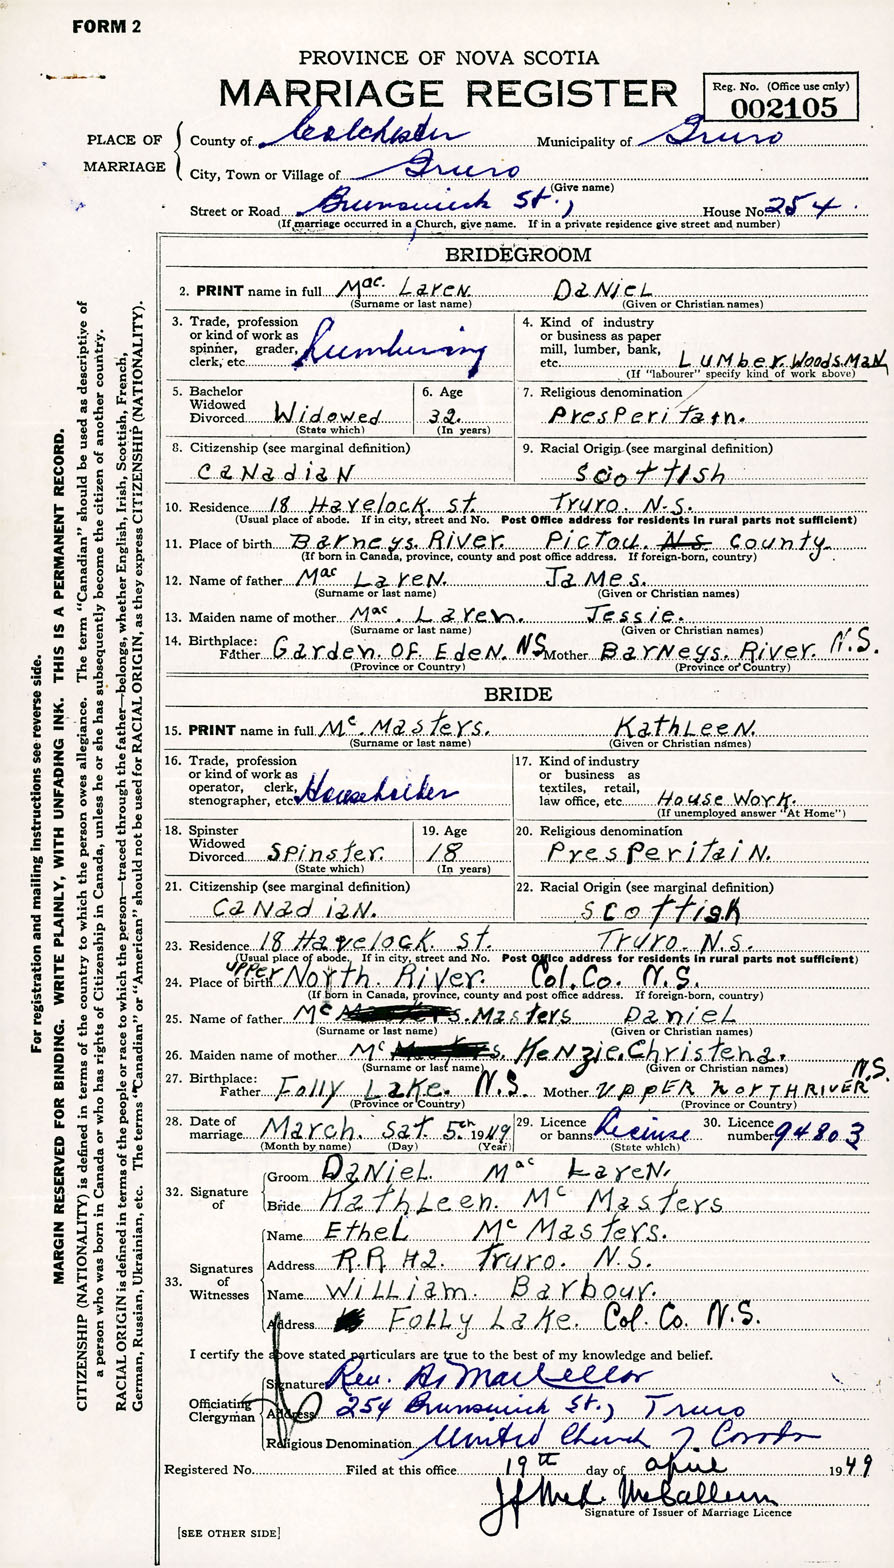 FORM 2
PROVINCE OF NOVA SCOTIA
MARRIAGE REGISTER
Reg. No. (Office use only)
002105
PLACE OF MARRIAGE
County of Colchester Municipality of Truro
City, Town or Village of Truro
(Give name)
Street or Road Brunswick St., House No. 254
(If marriage occurred in a Church, give name. If in a private residence give street and number)
BRIDEGROOM
2. PRINT name in full Mac Laren Daniel
(Surname or last name) (Given or Christian names)
3. Trade, profession or kind of work as spinner, grader, clerk, etc. Lumbering
4. Kind of industry or business as paper mill, lumber, bank, etc. Lumber Woods Man
(If "labourer" specify kind of work above)
5. Bachelor Widowed Divorced Widowed
(State which)
6. Age 32
(In years)
7. Religious denomination
PresPeritain.
8. Citizenship (see marginal definition)
Canadian
9. Racial Origin (see marginal definition)
Scottish
10. Residence 18 Havelock st. Truro. N.S.
(Usual place of abode. If in city, street and No. Post Office address for residents in rural parts not sufficient)
11. Place of birth Barneys River. Pictou. N.S. County
(If born in Canada, province, county and post office address. If foreign-born, country)
12. Name of father Mac Laren. James.
(Surname or last name) (Given or Christian names)
13. Maiden name of mother Mac. Laren. Jessie.
(Surname or last name) (Given or Christian names)
14. Birthplace: Father Garden. Of Eden. NS Mother Barneys. River. N.S.
(Province or Country) (Province or Country)
BRIDE
15. PRINT name in full Mc. Masters. Kathleen.
(Surname or last name) (Given or Christian names)
16. Trade, profession or kind of work as operator, clerk, stenographer, etc. Householder
17. Kind of industry or business as textiles, retail, law office, etc. House Work.
(If unemployed answer "At Home")
18. Spinster Widowed Divorced Spinster.
(State which)
19. Age 18
(In years)
20. Religious denomination
PresPeritain.
21. Citizenship (see marginal definition)
Canadian.
22. Racial Origin (see marginal definition)
Scottish
23. Residence 18 Havelock st. Truro. N.S.
(Usual place of abode. If in city, street and No. Post Office address for residents in rural parts not sufficient)
24. Place of birth Upper North River. Col. Co. N.S.
(If born in Canada, province, county and post office address. If foreign-born, country)
25. Name of father Mc Masters Daniel
(Surname or last name) (Given or Christian names)
26. Maiden name of mother Mc Kenzie. Christena.
(Surname or last name) (Given or Christian names)
27. Birthplace: Father Folly Lake. N.S. Mother Upper North River N.S.
(Province or Country) (Province or Country)
28. Date of marriage March. Sat. 5th 1949
(Month by name) (Day) (Year)
29. Licence or banns License
(State which)
30. Licence number 94803
32. Signature of
Groom Daniel Mac Laren.
Bride Kathleen. Mc Masters
33. Signatures of Witnesses
Name Ethel Mc Masters.
Address R.R #2. Truro. N.S.
Name William. Barbour.
Address Folly Lake. Col. Co. N.S.
I certify the above stated particulars are true to the best of my knowledge and belief.
Officiating Clergyman
Signature Rev. MacKellar
Address 254 Brunswick St., Truro
Religious Denomination United Church of Canada
Registered No. Filed at this office 19th day of April 1949
McCallum
Signature of Issuer of Marriage Licence
[SEE OTHER SIDE]
For registration and mailing instructions see reverse side.
MARGIN RESERVED FOR BINDING. WRITE PLAINLY, WITH UNFADING INK. THIS IS A PERMANENT RECORD.
CITIZENSHIP (NATIONALITY) is defined in terms of the country to which the person owes allegiance. The term "Canadian" should be used as descriptive of
a person who was born in Canada or who has rights of Citizenship in Canada, unless he or she has subsequently become the citizen of another country.
RACIAL ORIGIN is defined in terms of the people or race to which the person—traced through the father—belongs, whether English, Irish, Scottish, French,
German, Russian, Ukrainian, etc. The terms "Canadian" or "American" should not be used for RACIAL ORIGIN, as they express CITIZENSHIP (NATIONALITY).